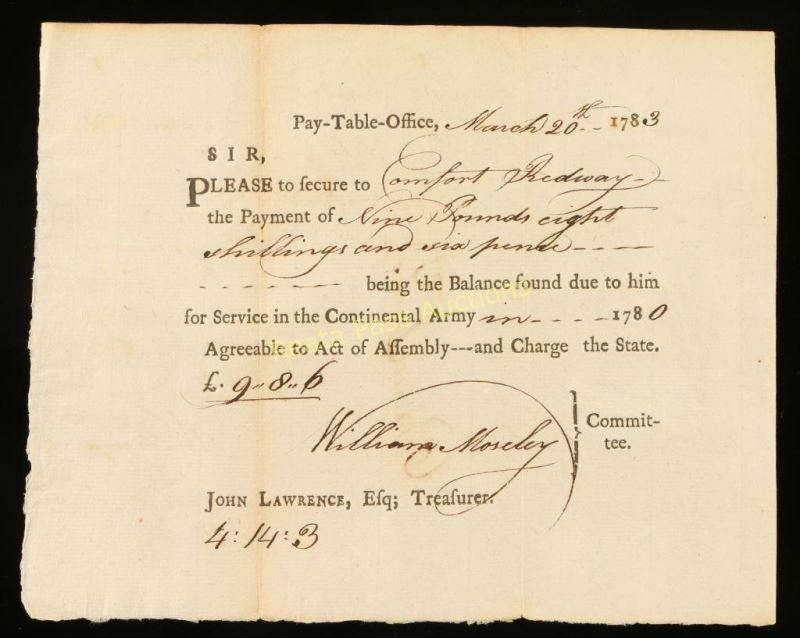 Pay-Table-Office, March 20th - - 1783
SIR,
PLEASE to secure to Comfort Redway -
the Payment of Nine Pounds eight
shillings and six pence - - - -
- - - - - - - - being the Balance found due to him
for Service in the Continental Army in - - - - 1780
Agreeable to Act of Assembly---and Charge the State.
£. 9 ,, 8 ,, 6
William Moseley } Commit-
tee.
JOHN LAWRENCE, Eſq; Treaſurer.
4: 14: 3